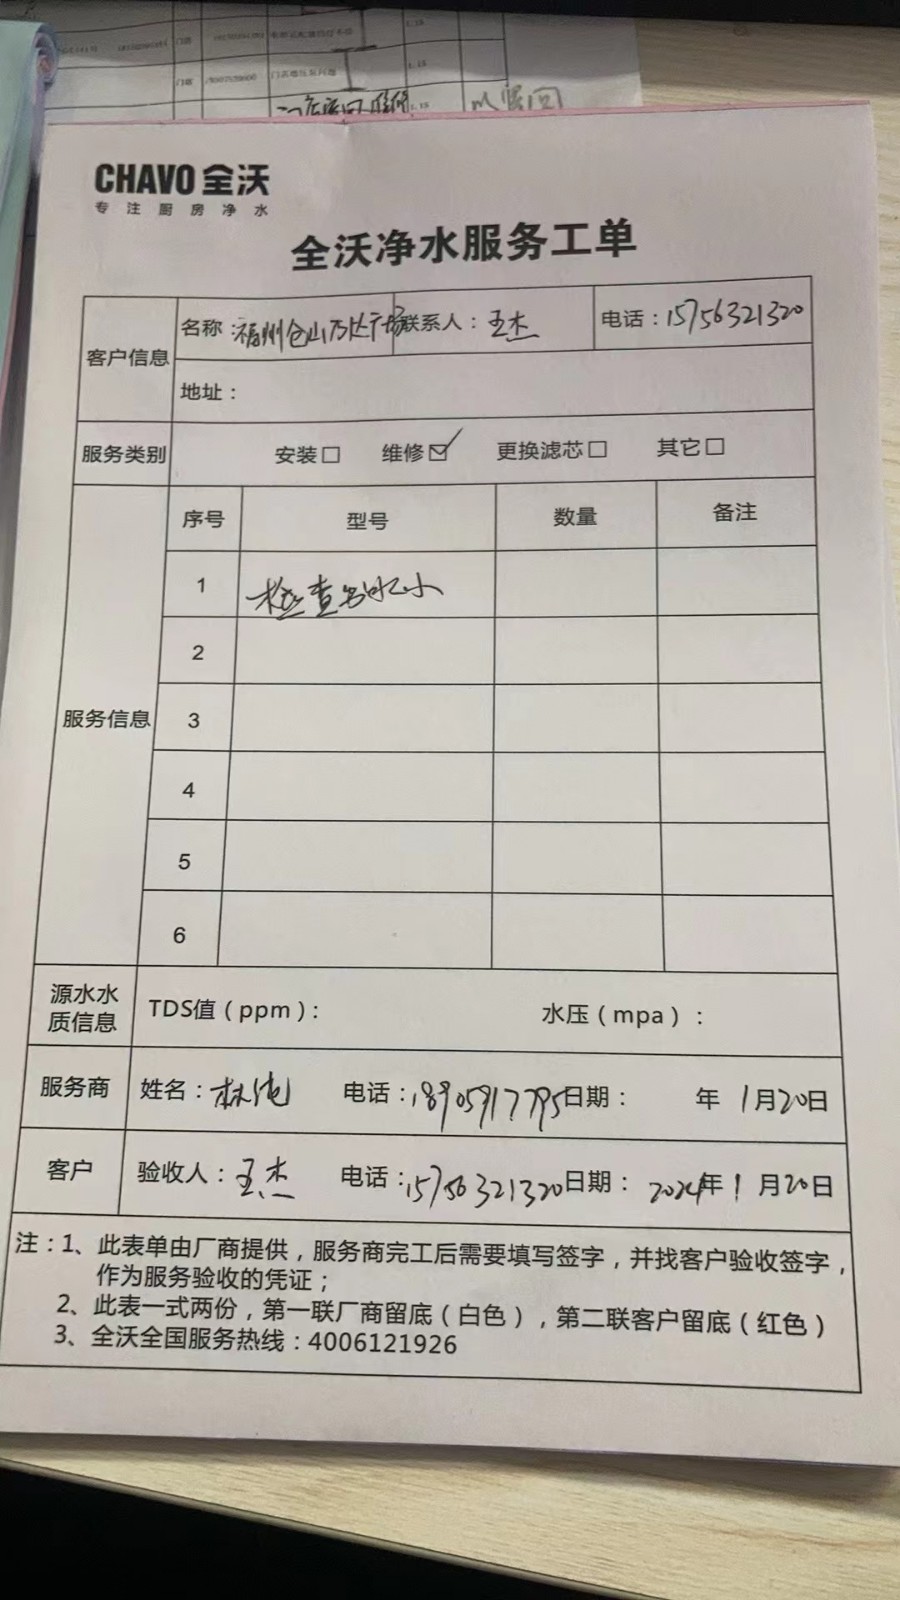 CHAVO 全沃
专注厨房净水
全沃净水服务工单
客户信息
名称 福州仓山万达广场 联系人：王杰 电话：15756321320
地址：
服务类别 安装□ 维修☑ 更换滤芯□ 其它□
服务信息
序号 型号 数量 备注
1 检查
2
3
4
5
6
源水水质信息 TDS值（ppm）： 水压（mpa）：
服务商 姓名：林 电话：18905917795 日期： 年 1月20日
客户 验收人：王杰 电话：15756321320 日期：2024年1月20日
注：1、此表单由厂商提供，服务商完工后需要填写签字，并找客户验收签字，
作为服务验收的凭证；
2、此表一式两份，第一联厂商留底（白色），第二联客户留底（红色）
3、全沃全国服务热线：4006121926